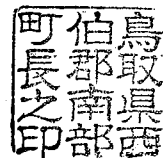 鳥取県西
伯郡南部
町長之印